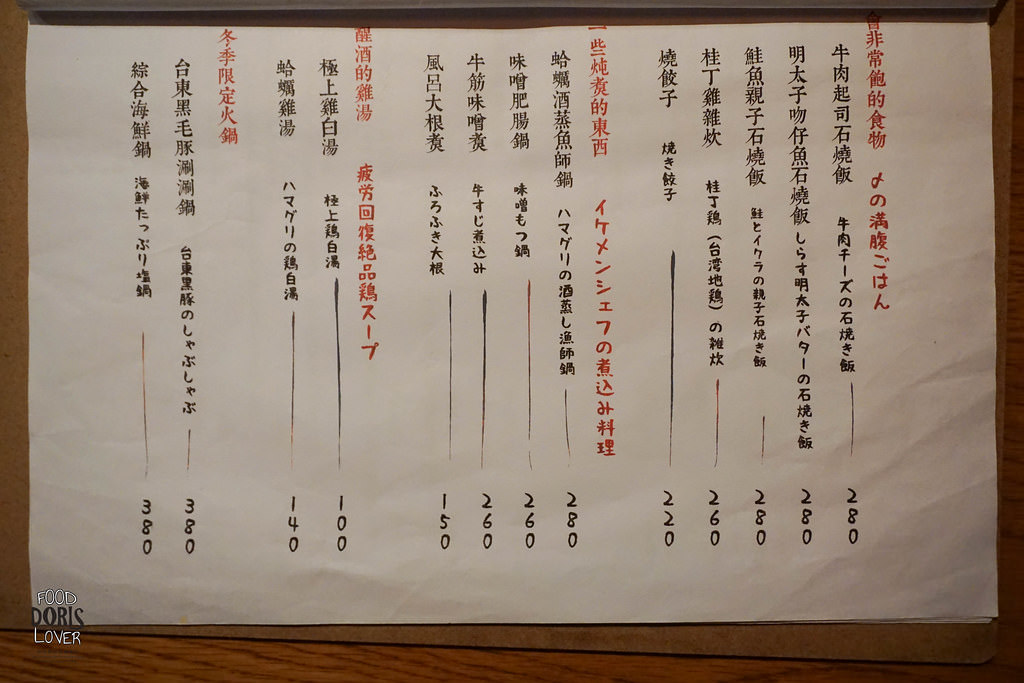 會非常飽的食物 〆の満腹ごはん
牛肉起司石燒飯 牛肉チーズの石焼き飯 280
明太子吻仔魚石燒飯 しらす明太子バターの石焼き飯 280
鮭魚親子石燒飯 鮭とイクラの親子石焼き飯 280
桂丁雞雜炊 桂丁鶏(台湾地鶏)の雑炊 260
燒餃子 焼き餃子 220
一些炖煮的東西 イケメンシェフの煮込み料理
蛤蠣酒蒸魚師鍋 ハマグリの酒蒸し漁師鍋 280
味噌肥腸鍋 味噌もつ鍋 260
牛筋味噌煮 牛すじ煮込み 260
風呂大根煮 ふろふき大根 150
醒酒的雞湯 疲労回復絶品鶏スープ
極上雞白湯 極上鶏白湯 100
蛤蠣雞湯 ハマグリの鶏白湯 140
冬季限定火鍋
台東黑毛豚涮涮鍋 台東黒豚のしゃぶしゃぶ 380
綜合海鮮鍋 海鮮たっぷり塩鍋 380
FOOD
DORIS
LOVER